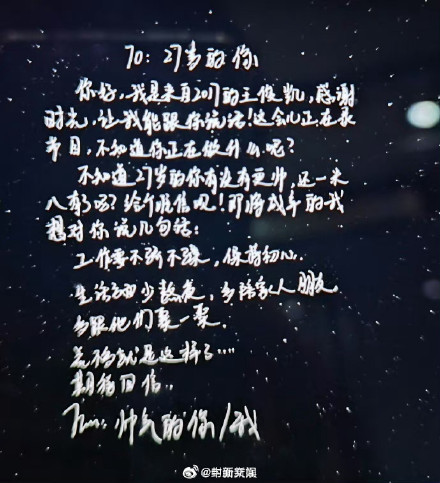 TO：27岁的你
你好，我是来自2017的王俊凯，感谢
时光，让我能跟你说话！这会儿正在录
节目，不知道你正在做什么呢？
不知道27岁的你有没有更帅，还一米
八有了吗？给个脸悟吧！即将成年的我
想对你说几句话：
工作要不骄不躁，保剪初心。
生活要少熬夜，多陪家人朋友
多跟他们聚一聚.
差不多就是这样了....
期待回信.
帅气的你/我
@新娱